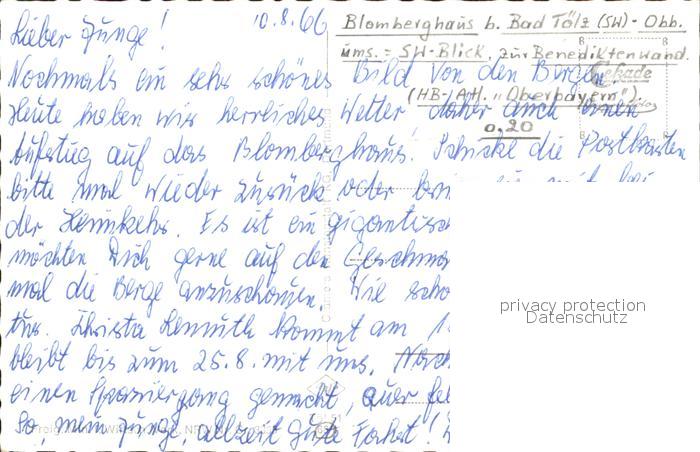 10.8.66 Blomberghaus b. Bad Tölz (SW) - Obb.
Lieber Junge!
ums. = SW-Blick, zur Benediktenwand.
Nochmals ein sehr schönes Bild von den Bergen
(HB-/AH. "Oberbayern").
Heute haben wir herrliches Wetter daher auch einen
0,20
Aufstieg auf das Blomberghaus! Schicke die Postkarten
bitte mal wieder zurück oder
der Heimkehr. Es ist ein gigantisch
möchten Dich gerne auf den Geschma
mal die Berge anzuschauen. Wie scho
Christa kommt am 1
bleibt bis zum 25.8. mit uns.
einen Spaziergang gemacht, quer fel
So, mein Junge, allzeit Gute Fahrt!
privacy protection
Datenschutz